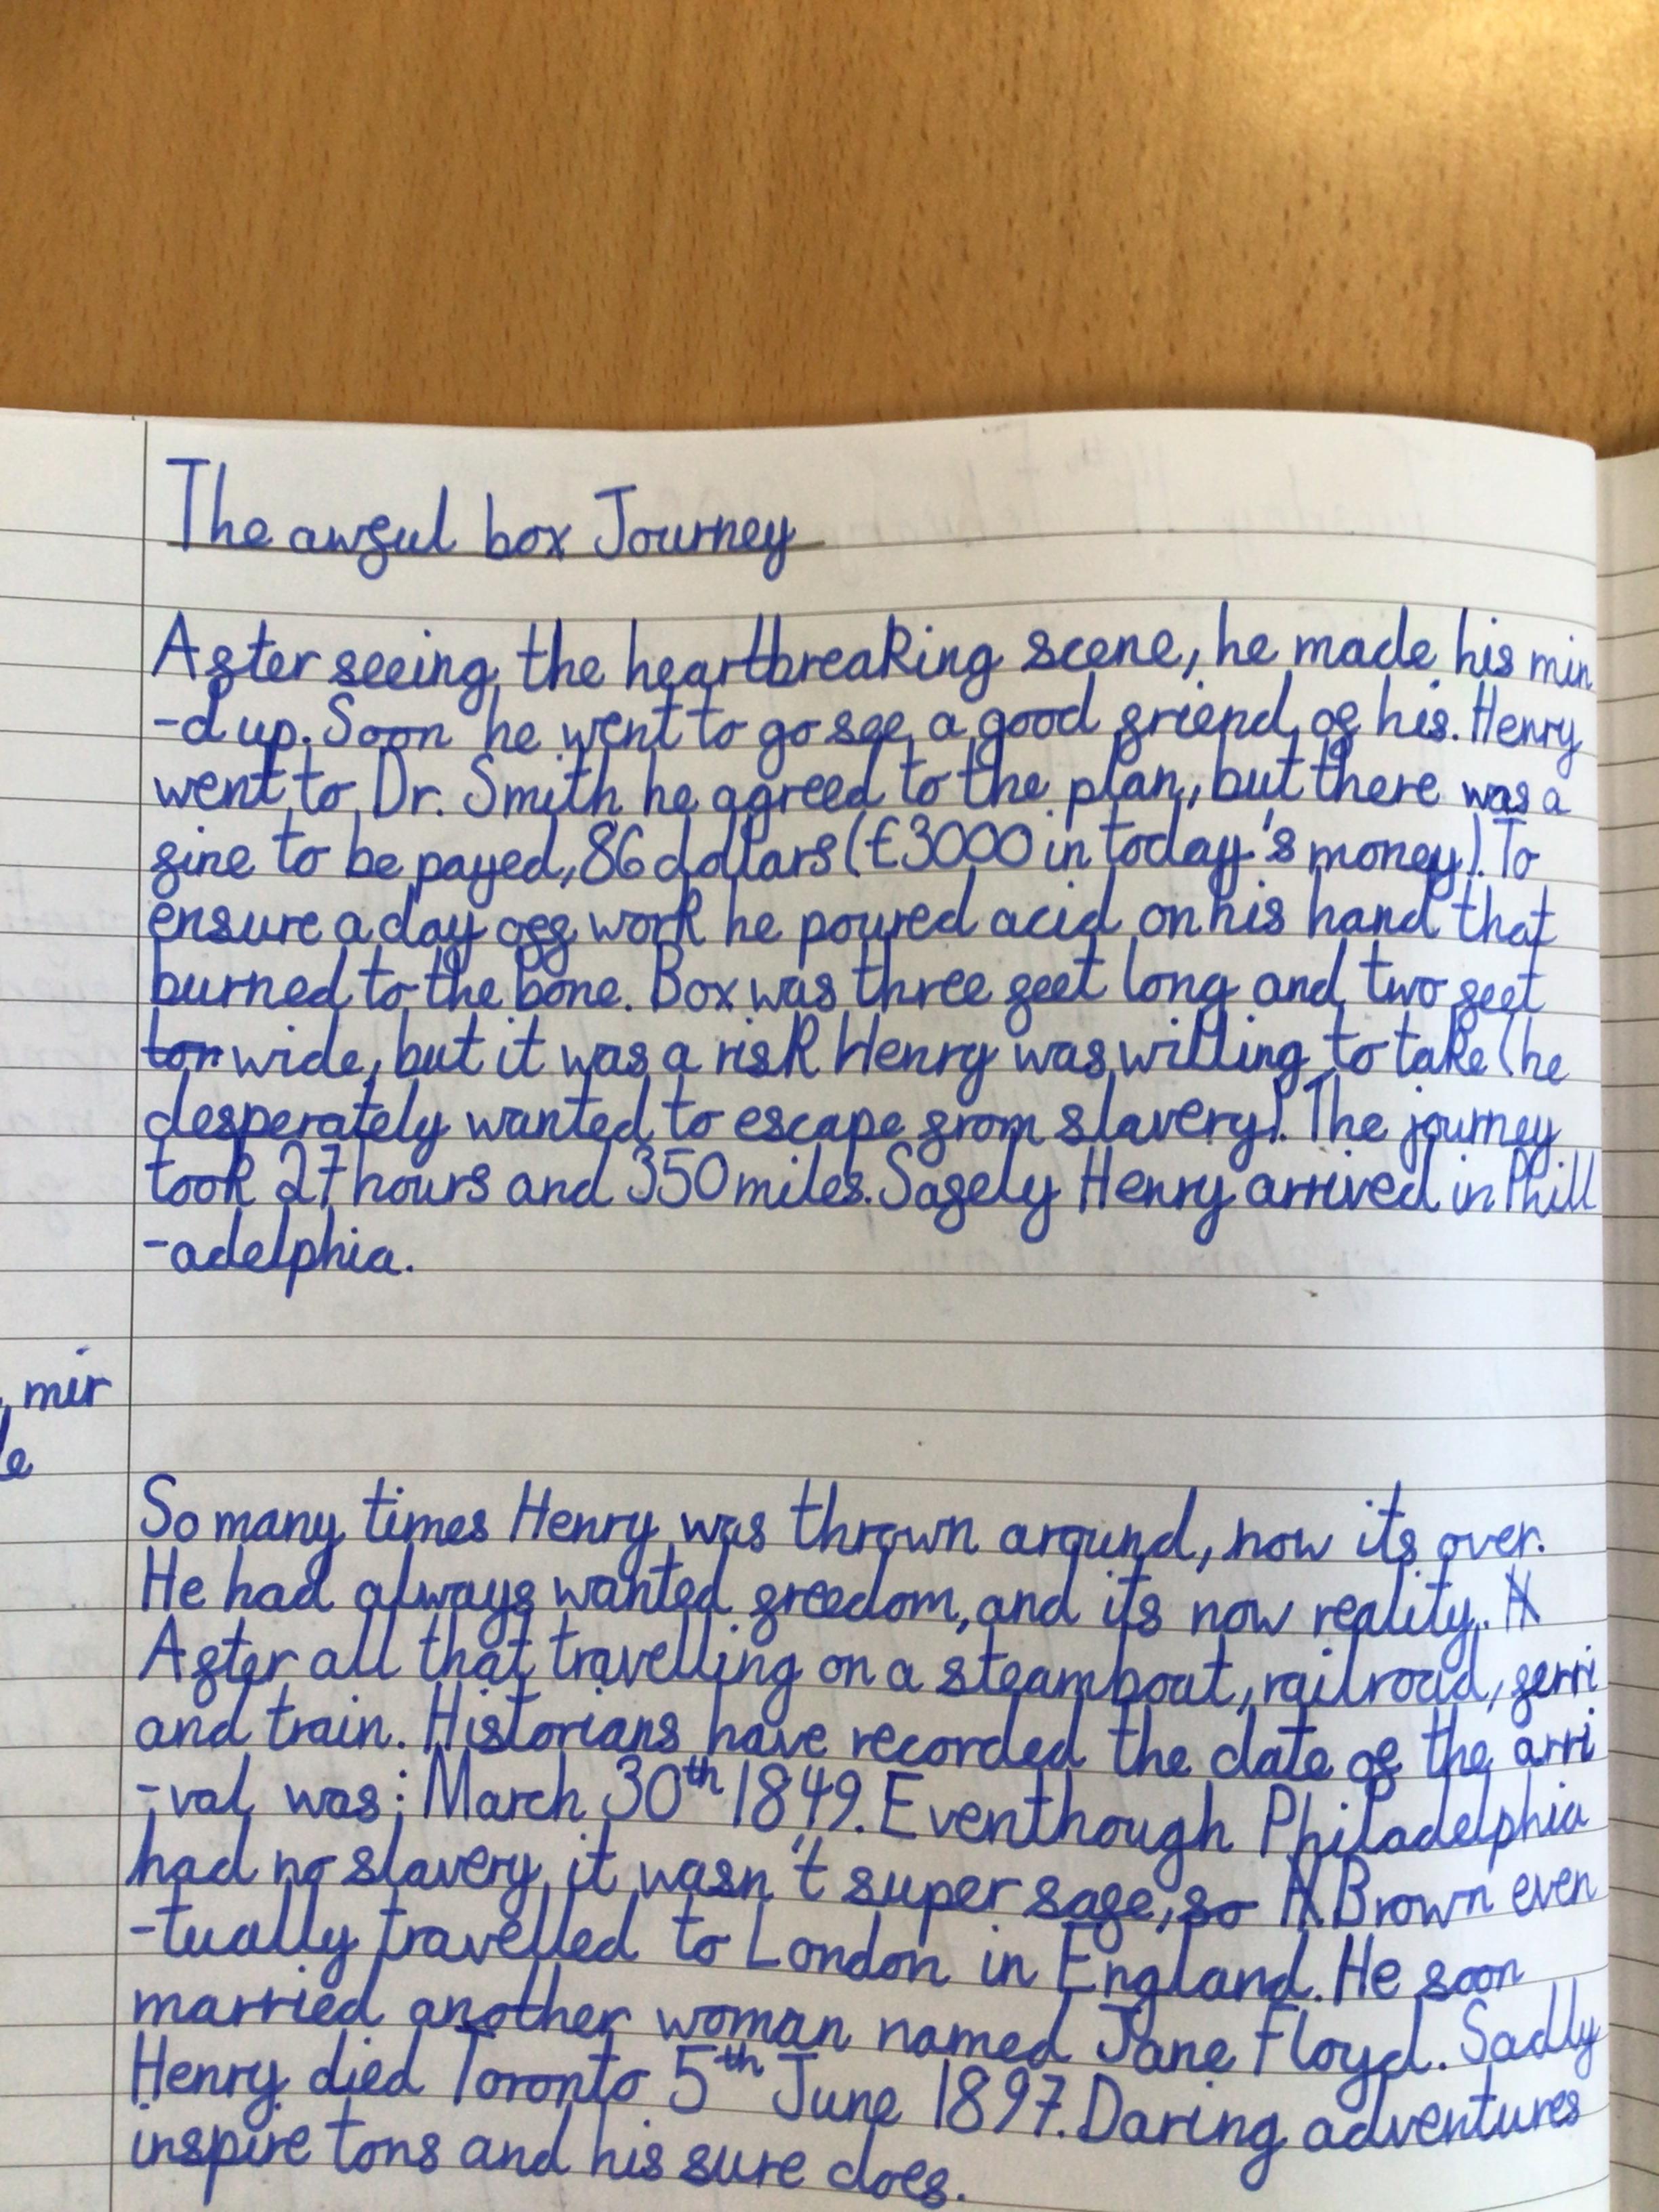 The awful box Journey
After seeing the heartbreaking scene, he made his min
-d up. Soon he went to go see a good friend of his. Henry
went to Dr. Smith he agreed to the plan, but there was a
fine to be payed, 86 dollars (£3000 in today's money). To
ensure a day off work he poured acid on his hand that
burned to the bone. Box was three feet long and two feet
ton wide, but it was a risk Henry was willing to take (he
desperately wanted to escape from slavery). The journey
took 27 hours and 350 miles. Safely Henry arrived in Phill
-adelphia.
mir
le
So many times Henry was thrown around, now its over.
He had always wanted freedom, and its now reality. A
After all that travelling on a steamboat, railroad, ferri
and train. Historians have recorded the date of the arri
-val was: March 30th 1849. Eventhough Philadelphia
had no slavery, it wasn't super safe, so H Brown even
-tually travelled to London in England. He soon
married another woman named Jane Floyd. Sadly
Henry died Toronto 5th June 1897. Daring adventures
inspire tons and his sure does.